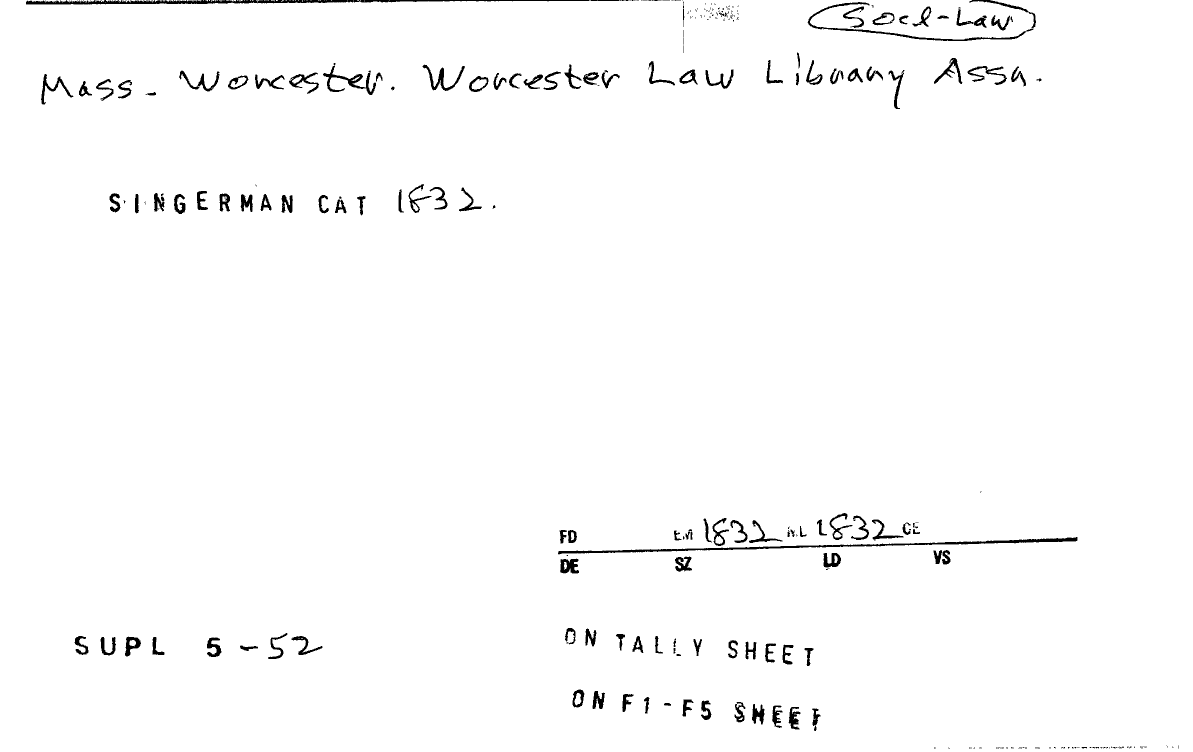 Socl-Law
Mass. Worcester. Worcester Law Library Assn.
SINGERMAN CAT 1832.
FD EM 1832 ML 1832 CE
DE SZ LD VS
SUPL 5-52
ON TALLY SHEET
ON F1-F5 SHEET